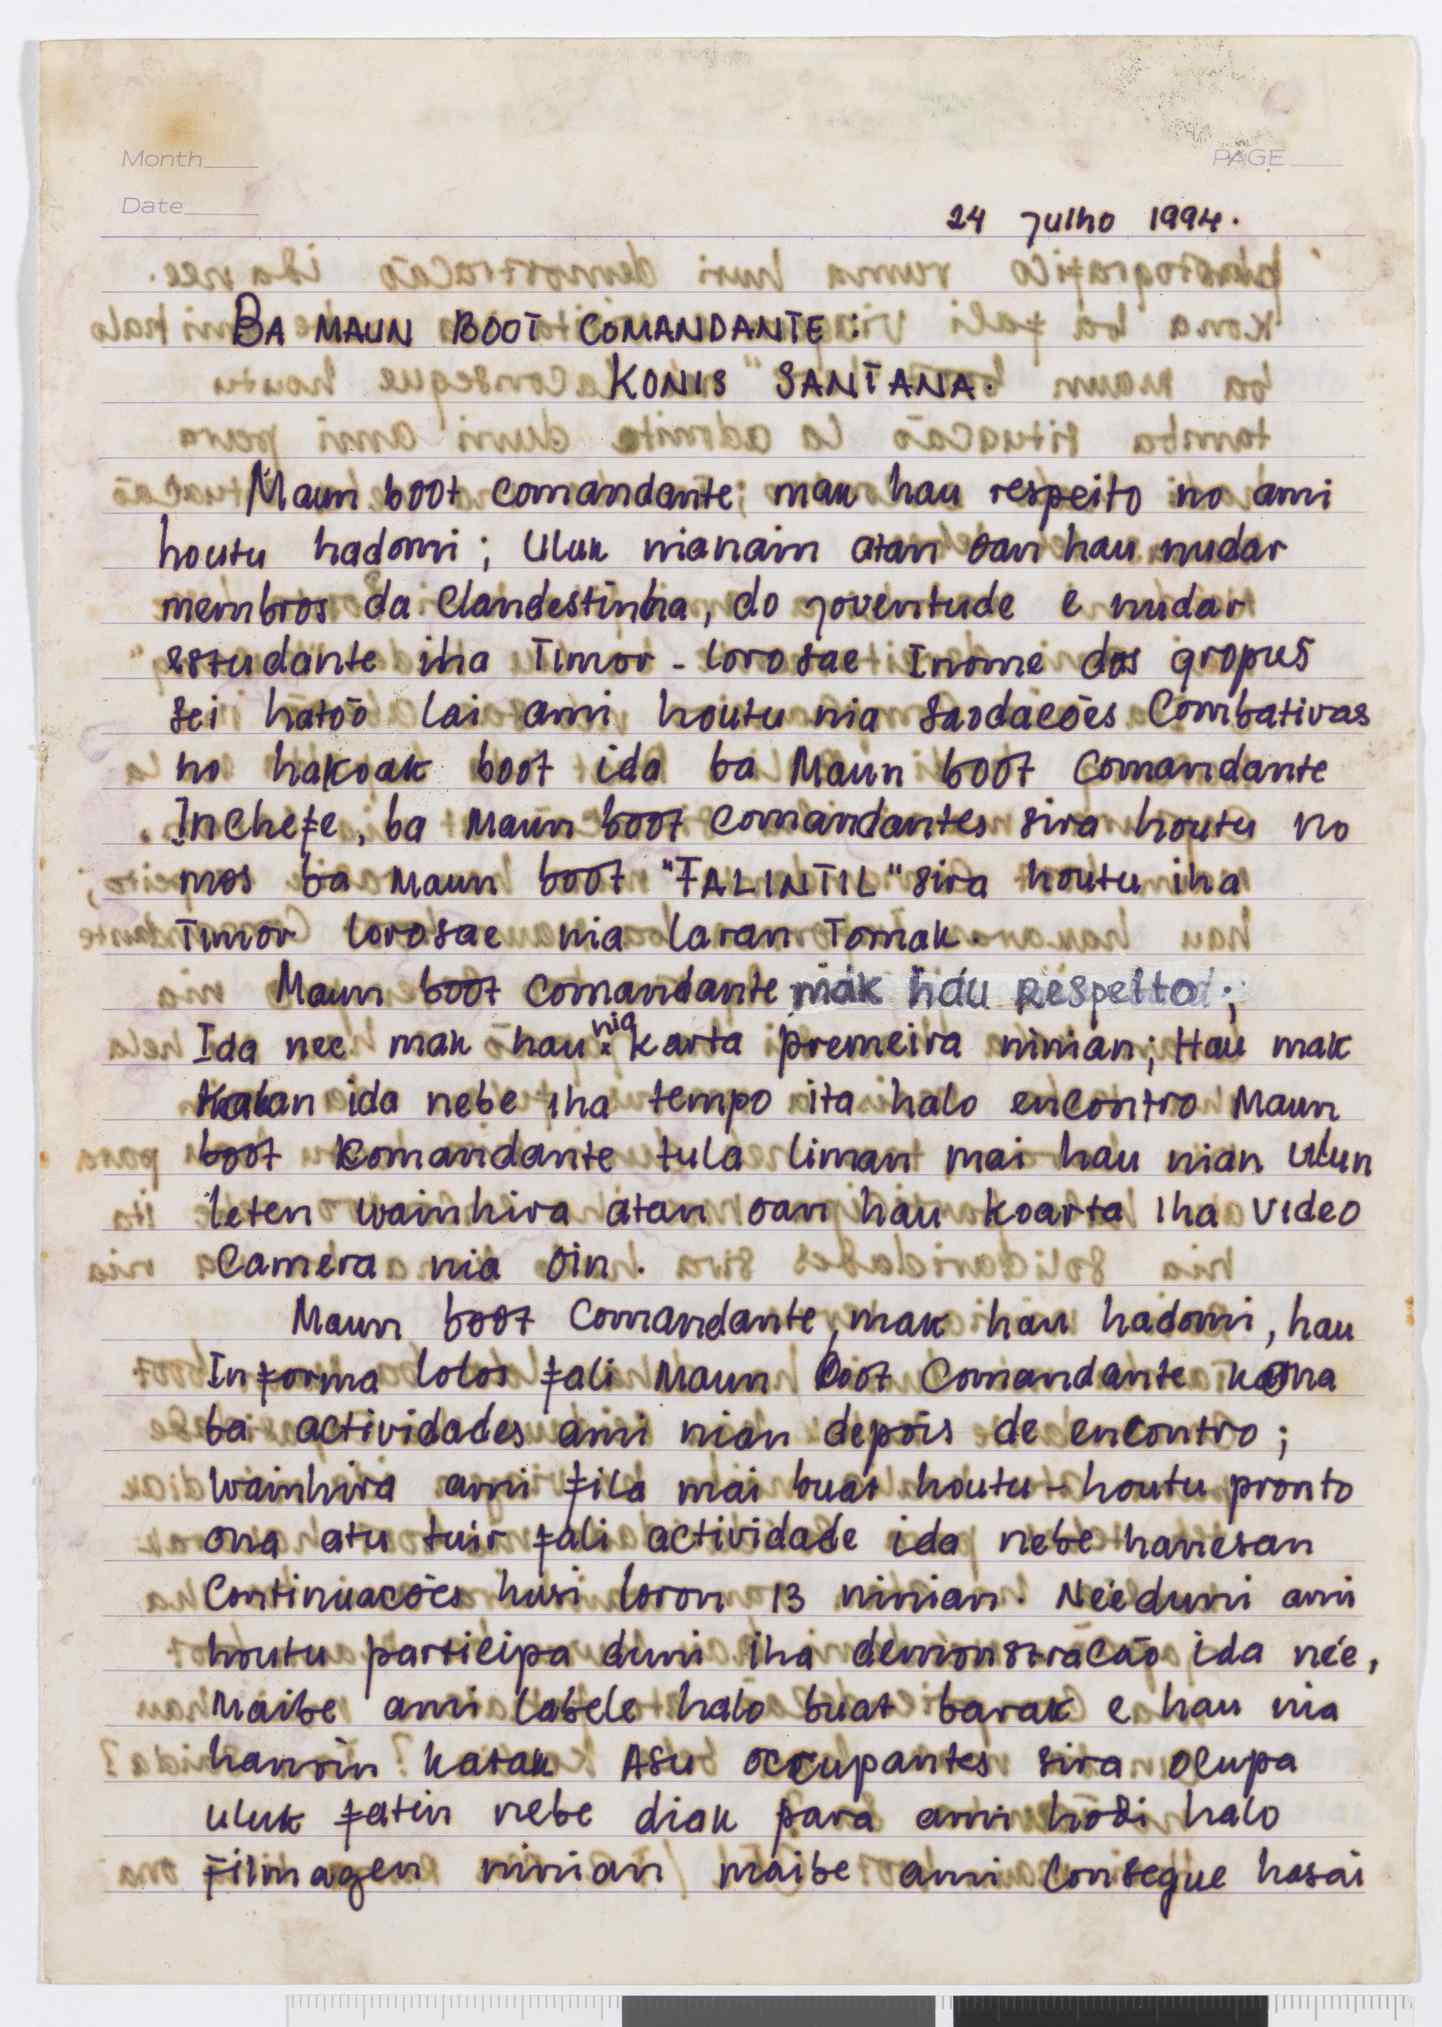 Month
PAGE
Date
24 Julho 1994.
BA MAUN BOOT COMANDANTE :
KONIS SANTANA.
Maun boot comandante; mak hau respeito no ami
houtu hadomi ; Uluk nianain atan oan hau nudar
membros da Clandestinha, do joventude e nudar
estudante iha Timor - lorosae Inome dos gropus
sei hatóo lai ami houtu nia saodacões Combativas
no hakoak boot ida ba Maun boot Comandante
Inchefe, ba Maun boot comandantes sira houtu no
mos ba Maun boot "FALINTIL" sira houtu iha
Timor lorosae nia laran Tomak.
Maun boot comandante mak hau respeito ;
Ida nee mak hau nia karta premeira ninian; Hau mak
Kalan ida nebe iha tempo ita halo encontro Maun
boot Komandante tula liman mai hau nian ulun
leten wainhira atan oan hau koarta iha video
Camera nia oin.
Maun boot Comandante, mak hau hadomi, hau
Informa lolos fali Maun boot Comandante kona
ba actividades ami nian depois de encontro ;
Wainhira ami fila mai buat houtu-houtu pronto
ona atu tuir fali actividade ida nebe hanesan
Continuacões husi loron 13 ninian. Néeduni ami
houtu participa duni iha demonstracão ida née,
Maibe ami labele halo buat barak e hau nia
hanoin katak ASU occupantes sira ocupa
uluk fatin nebe diak para ami hodi halo
Filmagen ninian / maibe ami Consegue hasai